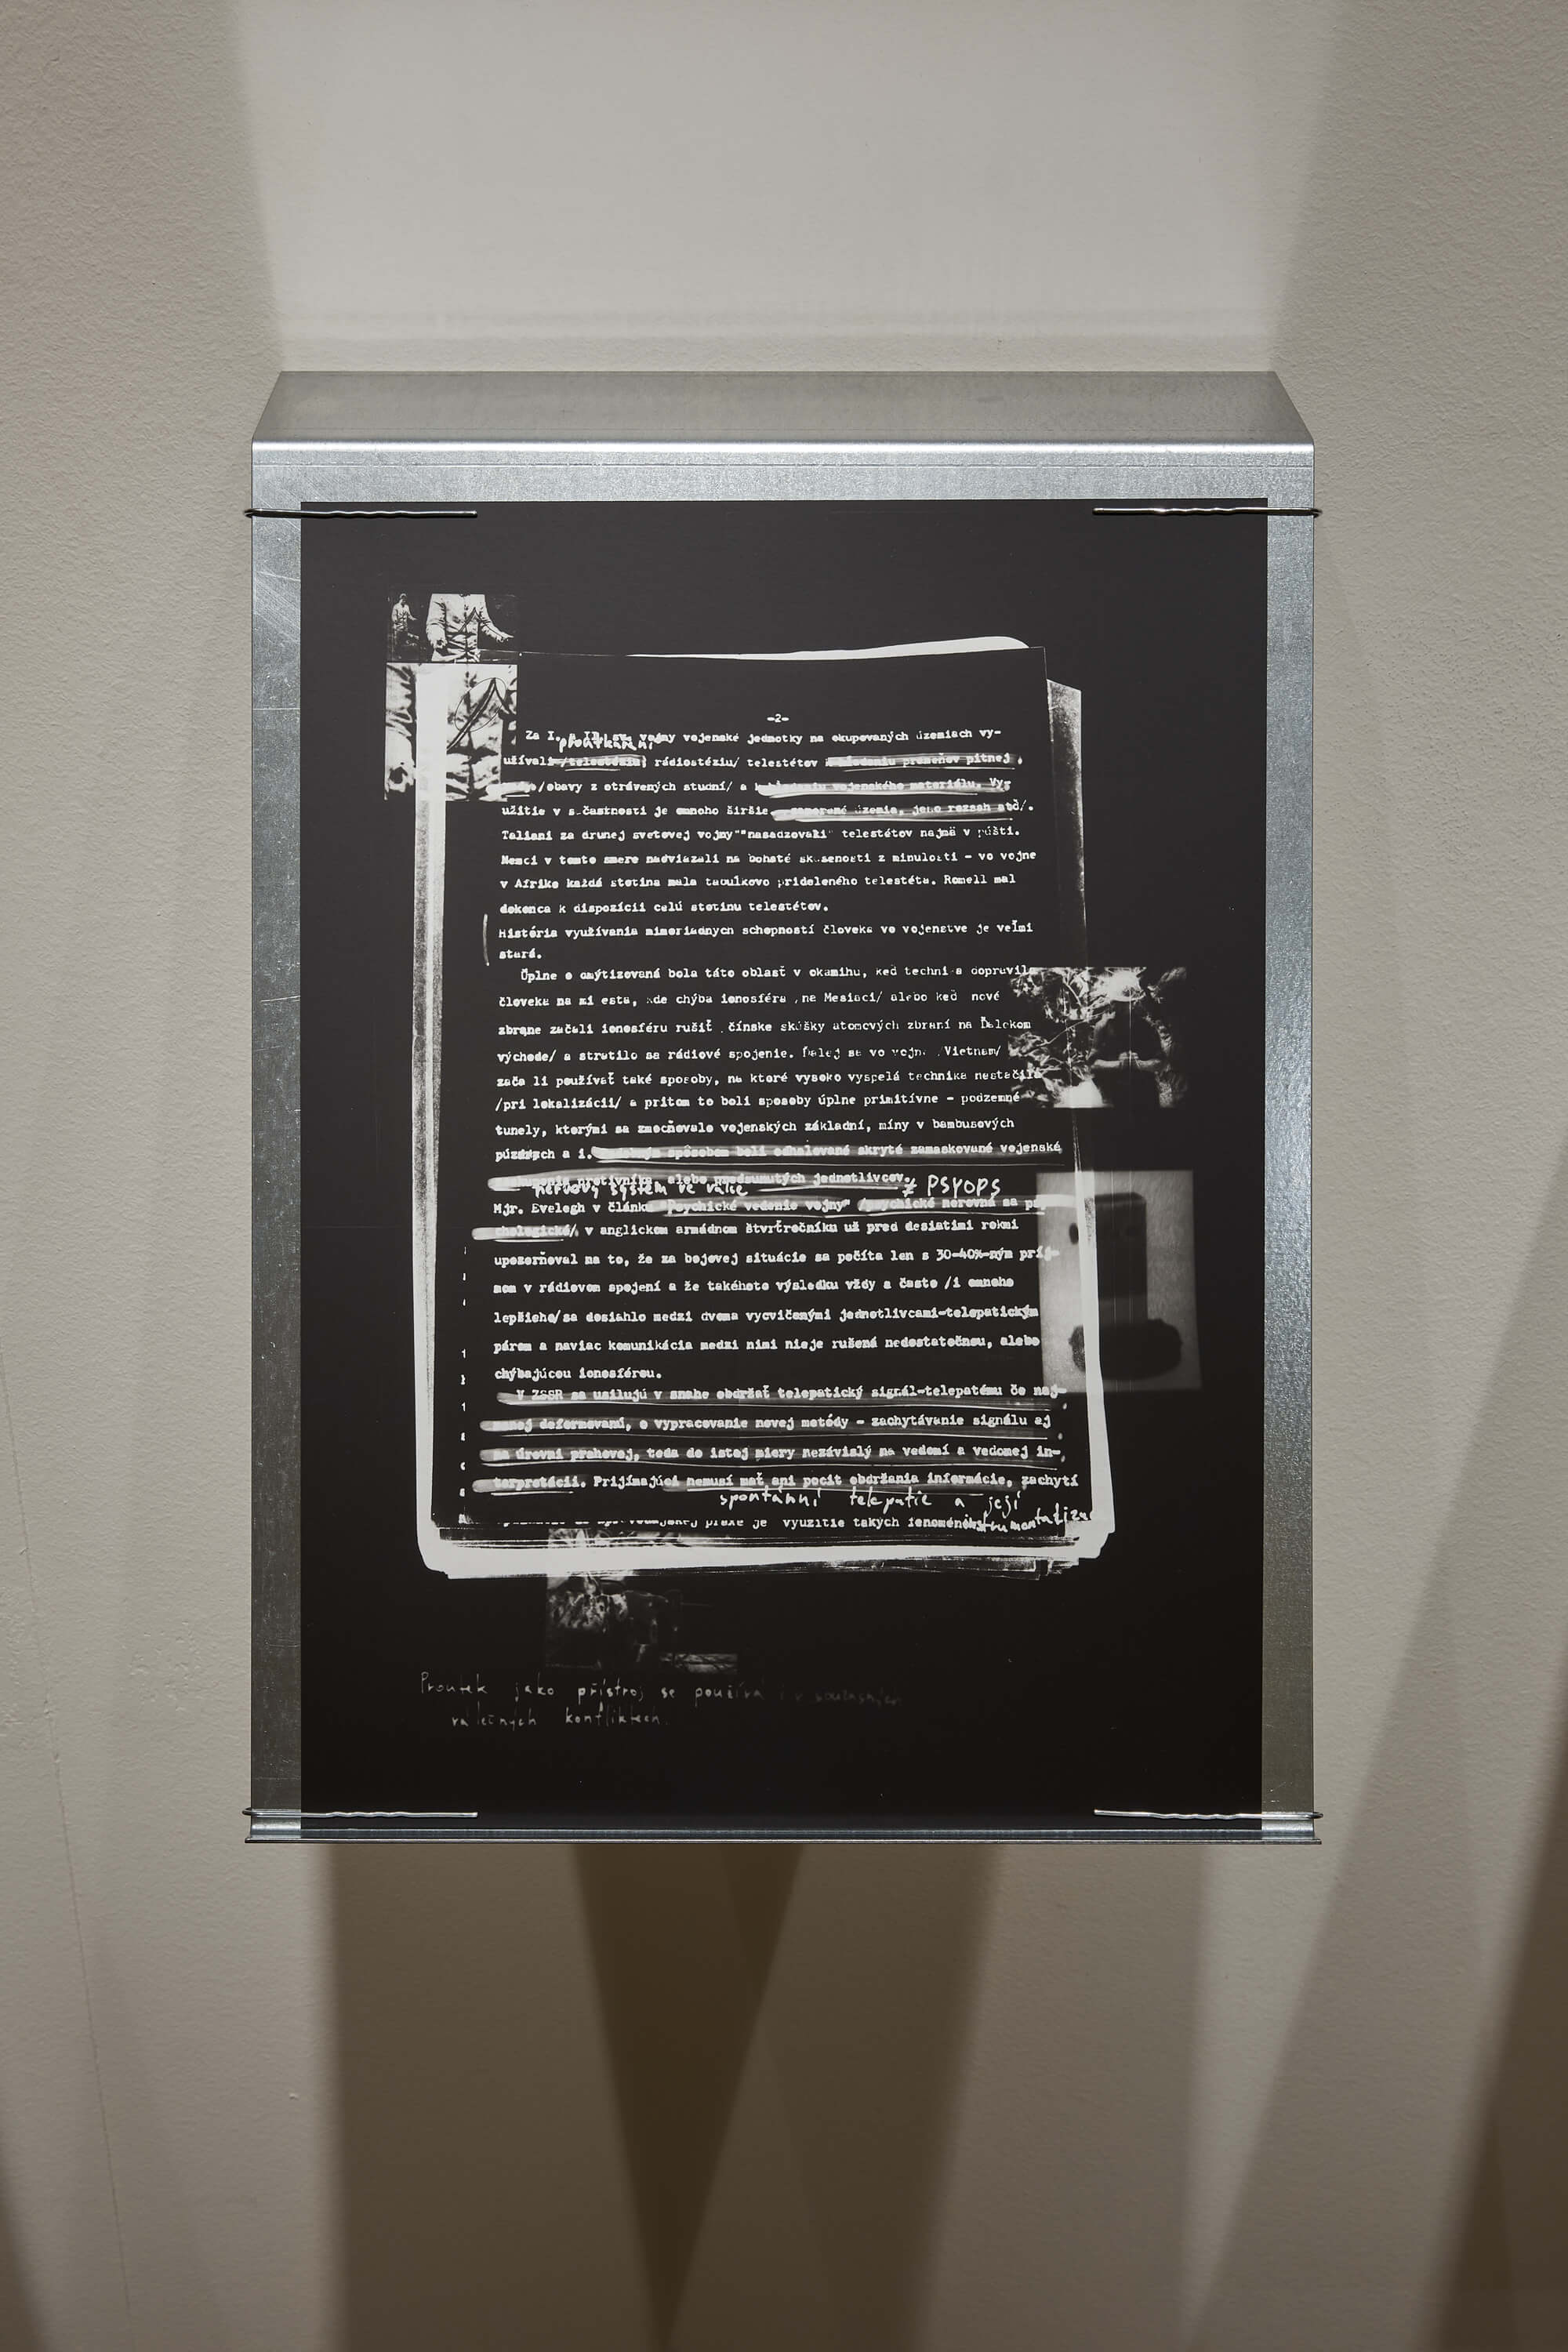 -2-
Za I. a II. sv. vojny vojenské jednotky na okupovaných územiach vy-
proutkaření
užívali /telestéziu/ rádiostéziu/ telestétov prameňov pitnej
/obavy z otrávených studní/ a vojenského materiálu. Vy-
užitie v s.častnosti je omnoho širšie územia, jeho rozsah atď/.
Taliani za druhej svetovej vojny "nasadzovali" telestétov najmä v púšti.
Nemci v tomto smere nadviazali na bohaté skúsenosti z minulosti - vo vojne
v Afrike každá stotina mala tabuľkovo prideleného telestéta. Romell mal
dokonca k dispozícii celú stotinu telestétov.
História využívania mimoriadnych schopností človeka vo vojenstve je veľmi
stará.
Úplne o dmýtizovaná bola táto oblasť v okamihu, keď techni a dopravila
človeka na mi esta, kde chýba ionosféra na Mesiaci/ alebo keď nové
zbrane začali ionosféru rušiť čínske skúšky atomových zbraní na Ďalekom
východe/ a stratilo sa rádiové spojenie. Ďalej sa vo vojne Vietnam/
zača li používať také sposoby, na ktoré vysoko vyspelá technika nestačila
/pri lokalizácii/ a pritom to boli sposoby úplne primitívne - podzemné
tunely, ktorými sa zmocňovalo vojenských základní, míny v bambusových
púzdrach a i. spôsobom boli odhalované skryté zamaskované vojenské
protivníka, alebo predsunutých jednotlivcov.
nervový systém ve válce ≠ PSYOPS
Mjr. Evelegh v článku "Psychické vedenie vojny" /psychické nerovná sa psy-
chologické/, v anglickom armádnom štvrťročníku už pred desiatimi rokmi
upozorňoval na to, že za bojovej situácie sa počíta len s 30-40%-ným príj-
mom v rádiovom spojení a že takéhoto výsledku vždy a často /i omnoho
lepšieho/sa dosiahlo medzi dvoma vycvičenými jednotlivcami-telepatickým
párom a naviac komunikácia medzi nimi nieje rušená nedostatočnou, alebo
chýbajúcou ionosférou.
V ZSSR sa usilujú v snahe obdržať telepatický signál-telepatému čo naj-
menej deformovanú, o vypracovanie novej metódy - zachytávanie signálu aj
na úrovni prahovej, teda do istej miery nezávislý na vedomí a vedomej in-
terpretácii. Prijímajúci nemusí mať ani pocit obdržania informácie, zachytí
spontánní telepatie a její
instrumentalizace
praxe je využitie takých fenoménov
Proutek jako přístroj se používá i v současných
válečných konfliktech.